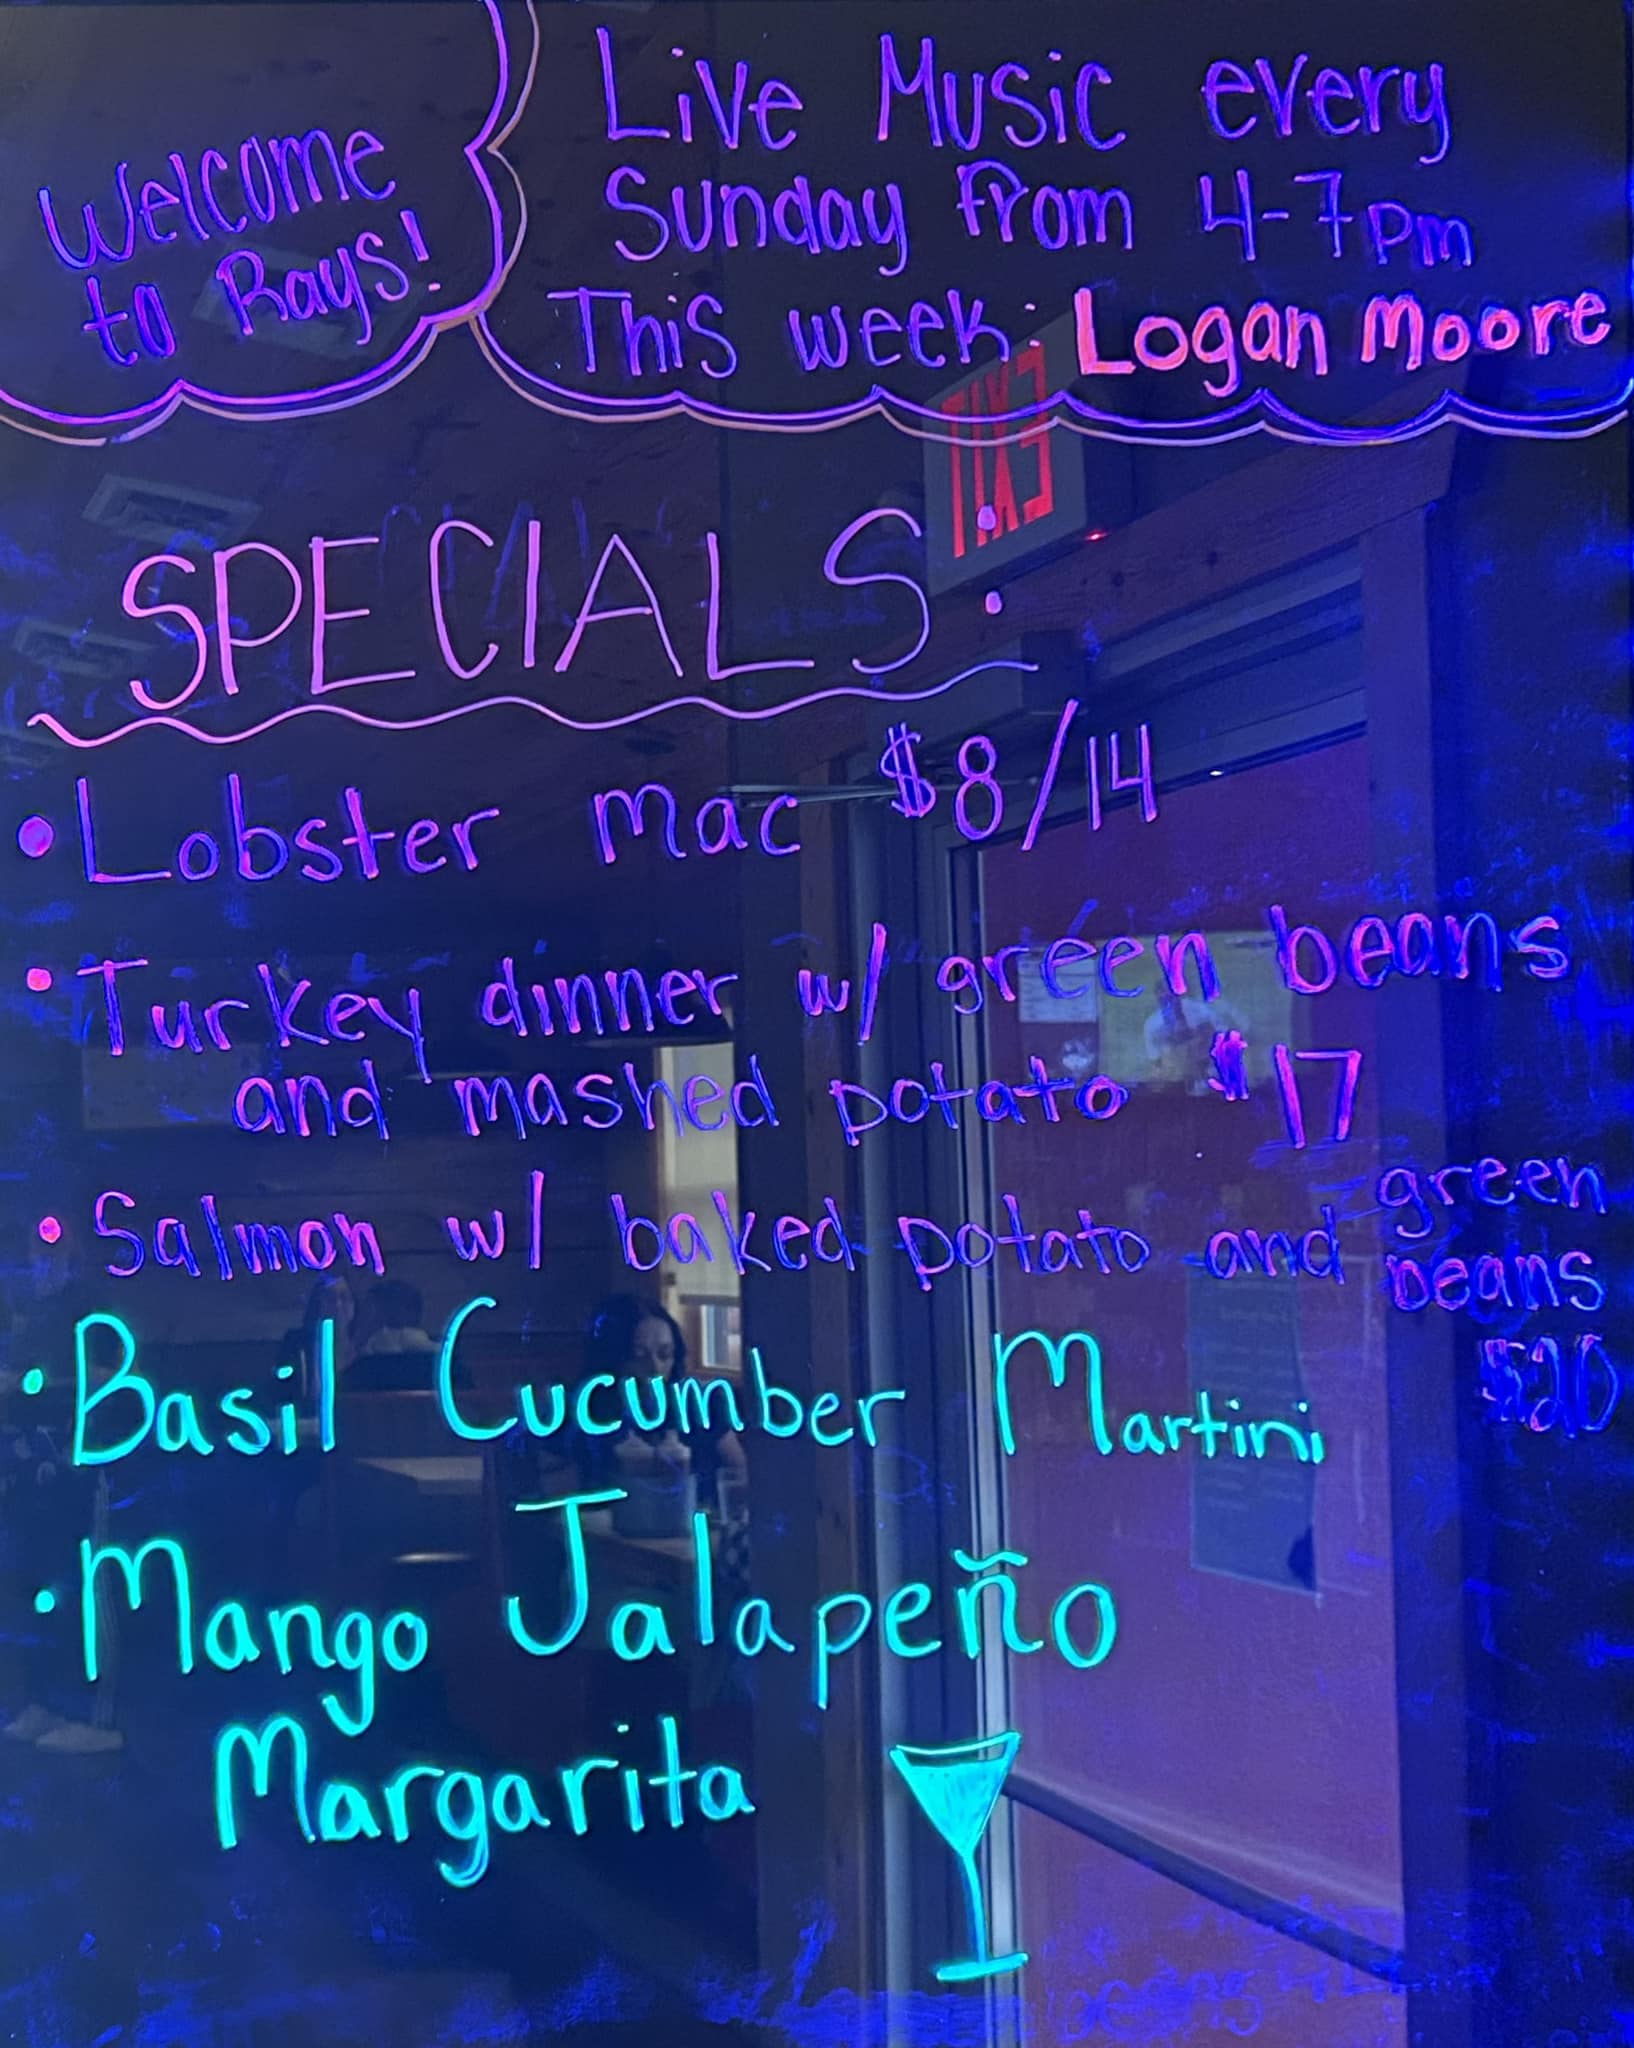 Welcome
to Rays!
Live Music every
Sunday from 4-7pm
This week: Logan Moore
EXIT
SPECIALS:
• Lobster mac $8/14
• Turkey dinner w/ green beans
and mashed potato $17
• Salmon w/ baked potato and green
beans
$20
• Basil Cucumber Martini
• Mango Jalapeño
Margarita